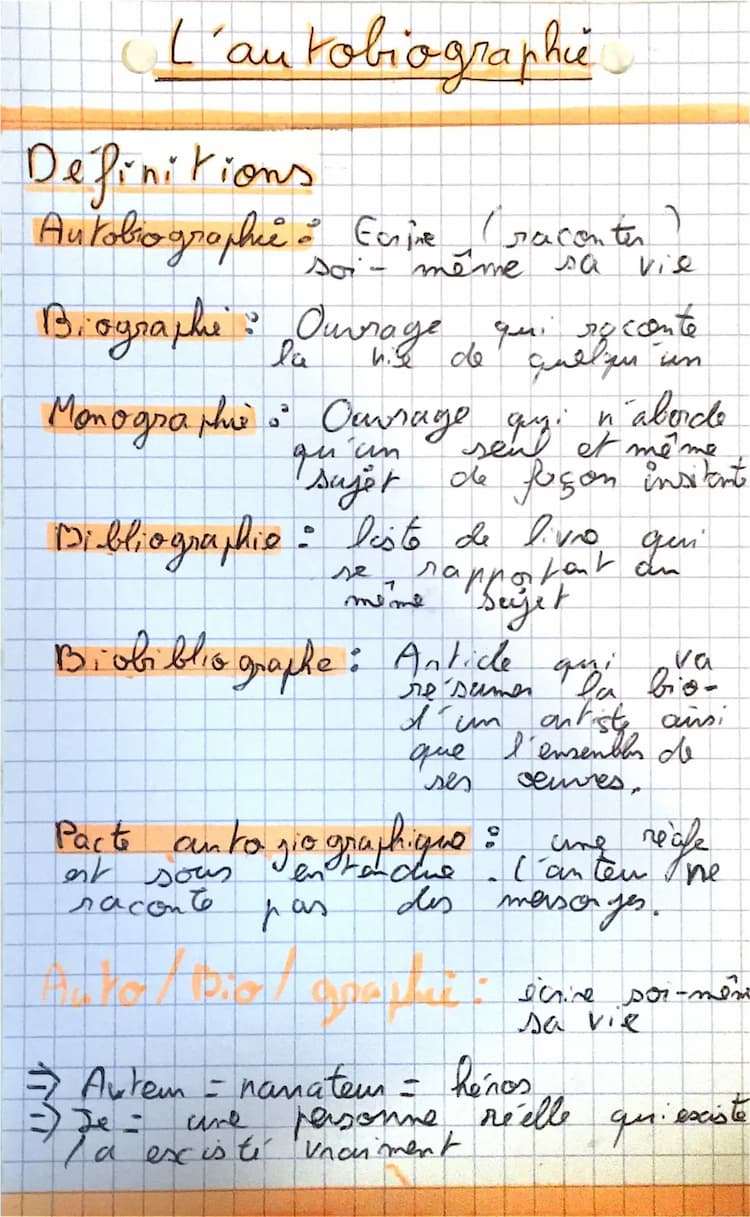 L'autobiographie
Définitions
Autobiographie : Ecrire (raconter)
soi-même sa vie
Biographie : Ouvrage qui raconte
la vie de quelqu'un
Monographie : Ouvrage qui n'aborde
qu'un seul et même
sujet de façon
Bibliographie : liste de livre qui
se rapportent au
même sujet
Biobibliographe : Article qui va
résumer la bio-
d'un artiste ainsi
que l'ensemble de
ses oeuvres.
Pacte autobiographique : une règle
est sous entendue. L'auteur ne
raconte pas des mensonges.
Auto/Bio/graphie : écrire soi-même
sa vie
⇒ Auteur = narrateur = héros
⇒ Je = une personne réelle qui existe
/a excisté vraiment